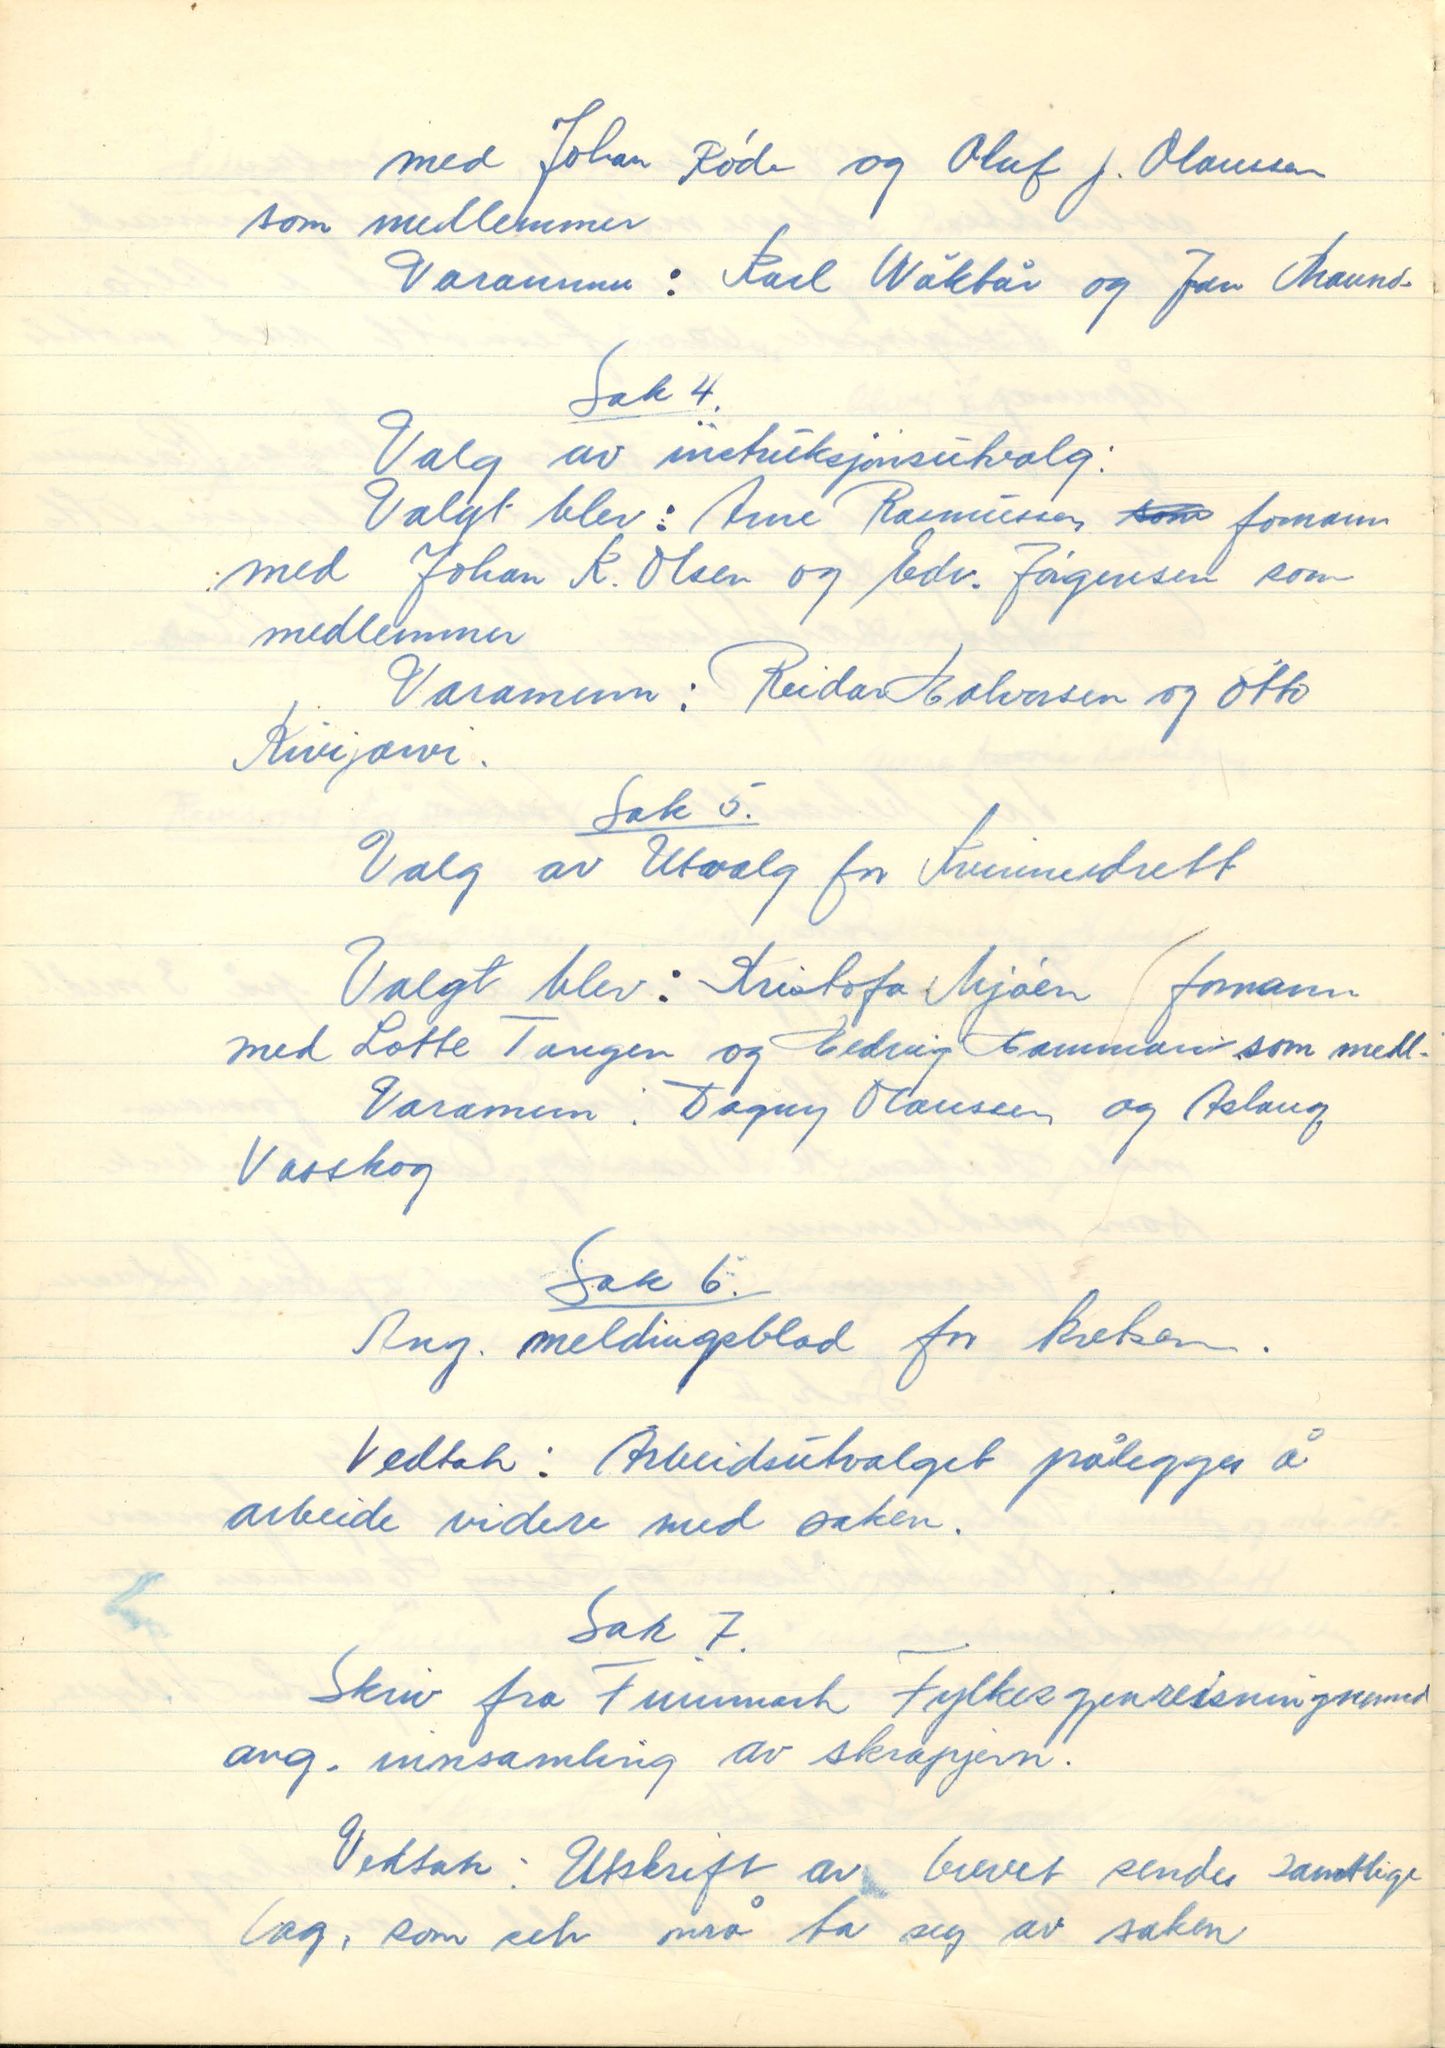 med Johan Røde og Oluf J. Olaussen
som medlemmer
Varamenn : Karl Wäktär og Jan
Sak 4.
Valg av instruksjonsutvalg:
Valgt blev : Arne Rasmussen som formann
med Johan K. Olsen og Edv. Jørgensen som
medlemmer
Varamenn : Reidar Halvorsen og Otto
Kivijarvi.
Sak 5.
Valg av Utvalg for Kvinneidrett
Valgt blev : Kristofa Mjøen formann
med Lotte Tangen og Hedvig Hammari som medl.
Varamenn : Dagny Olaussen og Aslaug
Vasskog
Sak 6.
Ang. meldingsblad for kretsen.
Vedtak : Arbeidsutvalget pålegges å
arbeide videre med saken.
Sak 7.
Skriv fra Finnmark Fylkesgjenreisningnemnd
ang. innsamling av skrapjern.
Vedtak : Utskrift av brevet sendes samtlige
lag, som selv må ta seg av saken